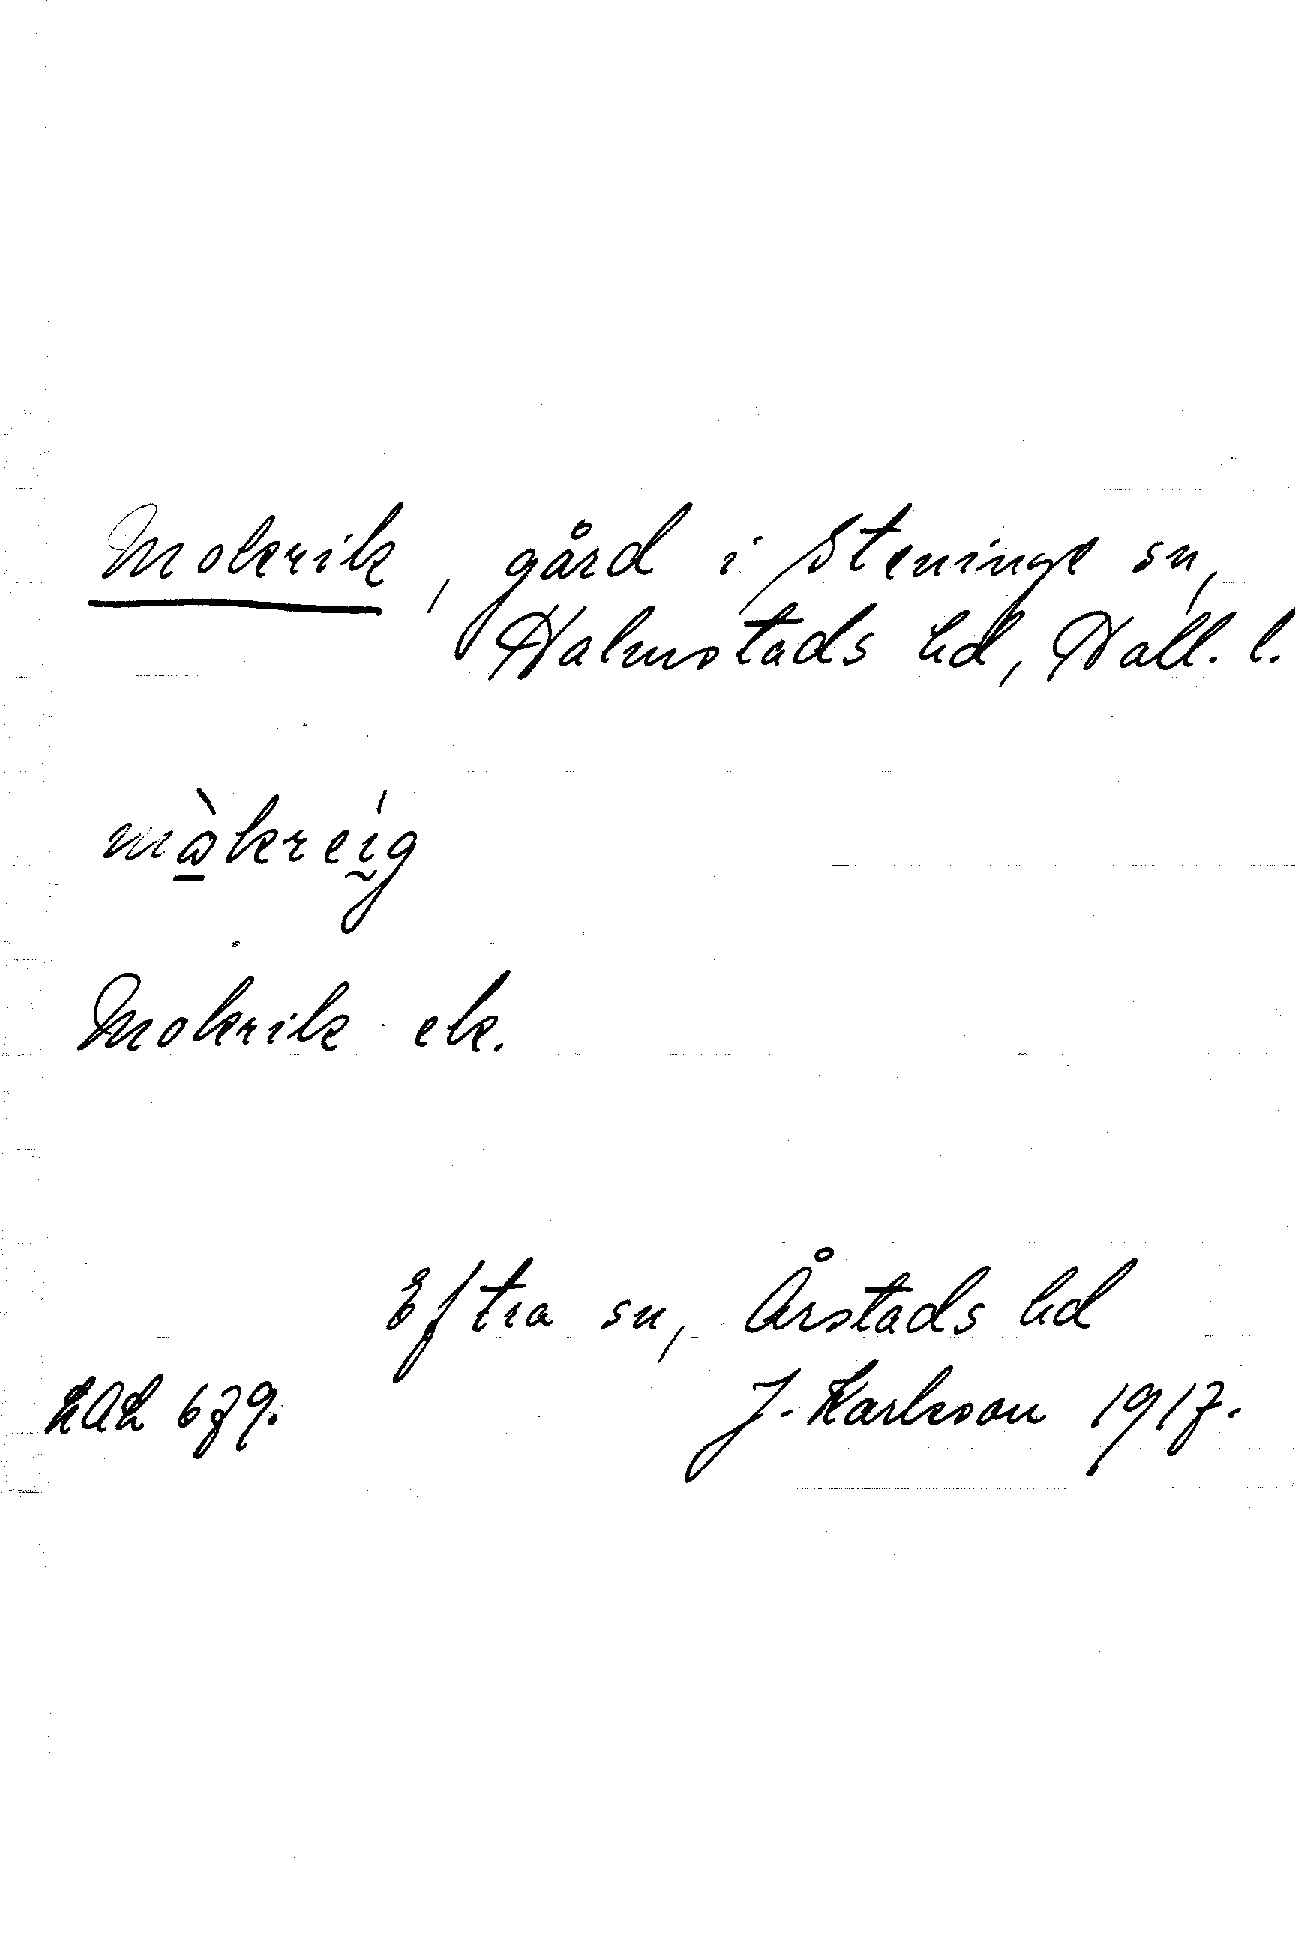 Mokrik, gård i Steninge sn,
Halmstads hd, Hall. l.
mə̀kreíg
Mokrik ek.
Eftra sn, Årstads hd
LAL 679. J. Karlsson 1917.